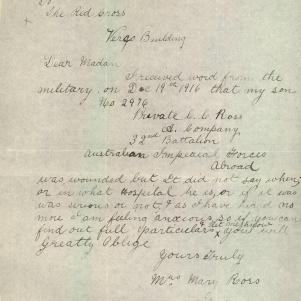 To
The Red Cross
Verco Building
Dear Madam
I received word from the
military on Dec 19th 1916 that my son
No 2976
Private C. C Ross
A. Company
32nd Battalion
Australian Impecial Forces
Abroad
was wounded but It did not say where
or in what Hospital he is, or if it was
was serious or not, & as I have heard no
more I am feeling anxious, so if you can
find out full particulars & let me know you will
Greatly Oblige
Yours Truly
Mrs Mary Ross